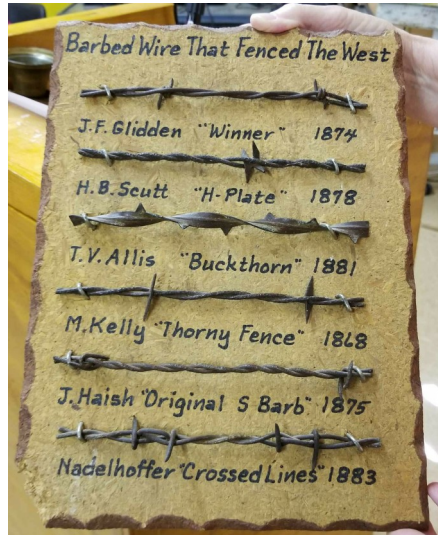 Barbed Wire That Fenced The West
J.F. Glidden "Winner" 1874
H.B. Scutt "H-Plate" 1878
T.V. Allis "Buckthorn" 1881
M. Kelly "Thorny Fence" 1868
J. Haish "Original S Barb" 1875
Nadelhoffer "Crossed Lines" 1883